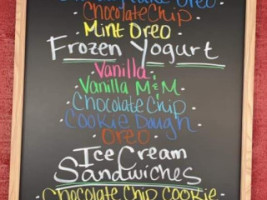 Oreo
Chocolate Chip
Mint Oreo
Frozen Yogurt
Vanilla
Vanilla M&M
Chocolate Chip
Cookie Dough
Oreo
Ice Cream
Sandwiches
Chocolate Chip Cookie